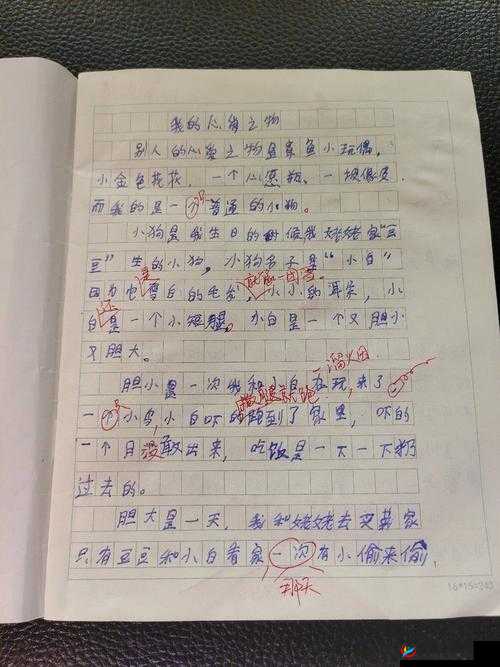 我的心爱之物
别人的心爱之物是家鱼小玩偶，
小金色花花，一个心愿瓶、一
而我的是一个普通的小狗。
小狗是我生日的时候我姥姥家“豆
豆”生的小狗，小狗名子是“小白”
是 就像一团雪
因为它雪白的毛发，小小的耳朵，小
还
白是一个小短腿。小白是一个又胆小
又胆大。
一溜火因
胆小是一次我和小白在玩，来了
撒腿就跑
一个小鸟，小白吓的跑到了家里，吓的
一个月没敢出来，吃饭是一下一下扔
过去的。
胆大是一天，我和姥姥去买菜家
只有豆豆和小白看家一次有小偷来偷，
那天
16*15=240